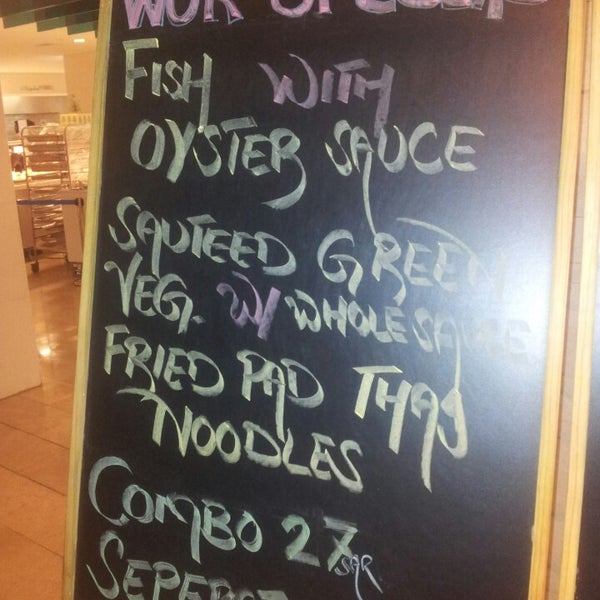 WOK
FISH WITH
OYSTER SAUCE
SAUTEED GREEN
VEG. W/ WHOLE SAUCE
FRIED PAD THAJ
NOODLES
COMBO 27
SAR